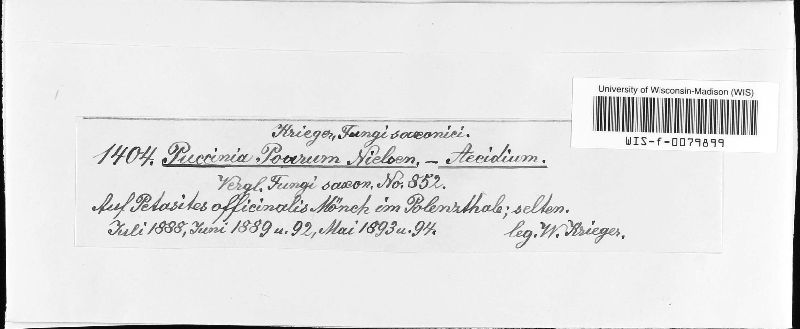 University of Wisconsin-Madison (WIS)
WIS-f-0079899
Krieger, Fungi saxonici.
1404. Puccinia Poarum Nielsen. – Aecidium.
Vergl. Fungi saxon. No. 852.
Auf Petasites officinalis Mönch im Polenzthale; selten.
Juli 1888, Juni 1889 u. 92, Mai 1893 u. 94. leg. W. Krieger.